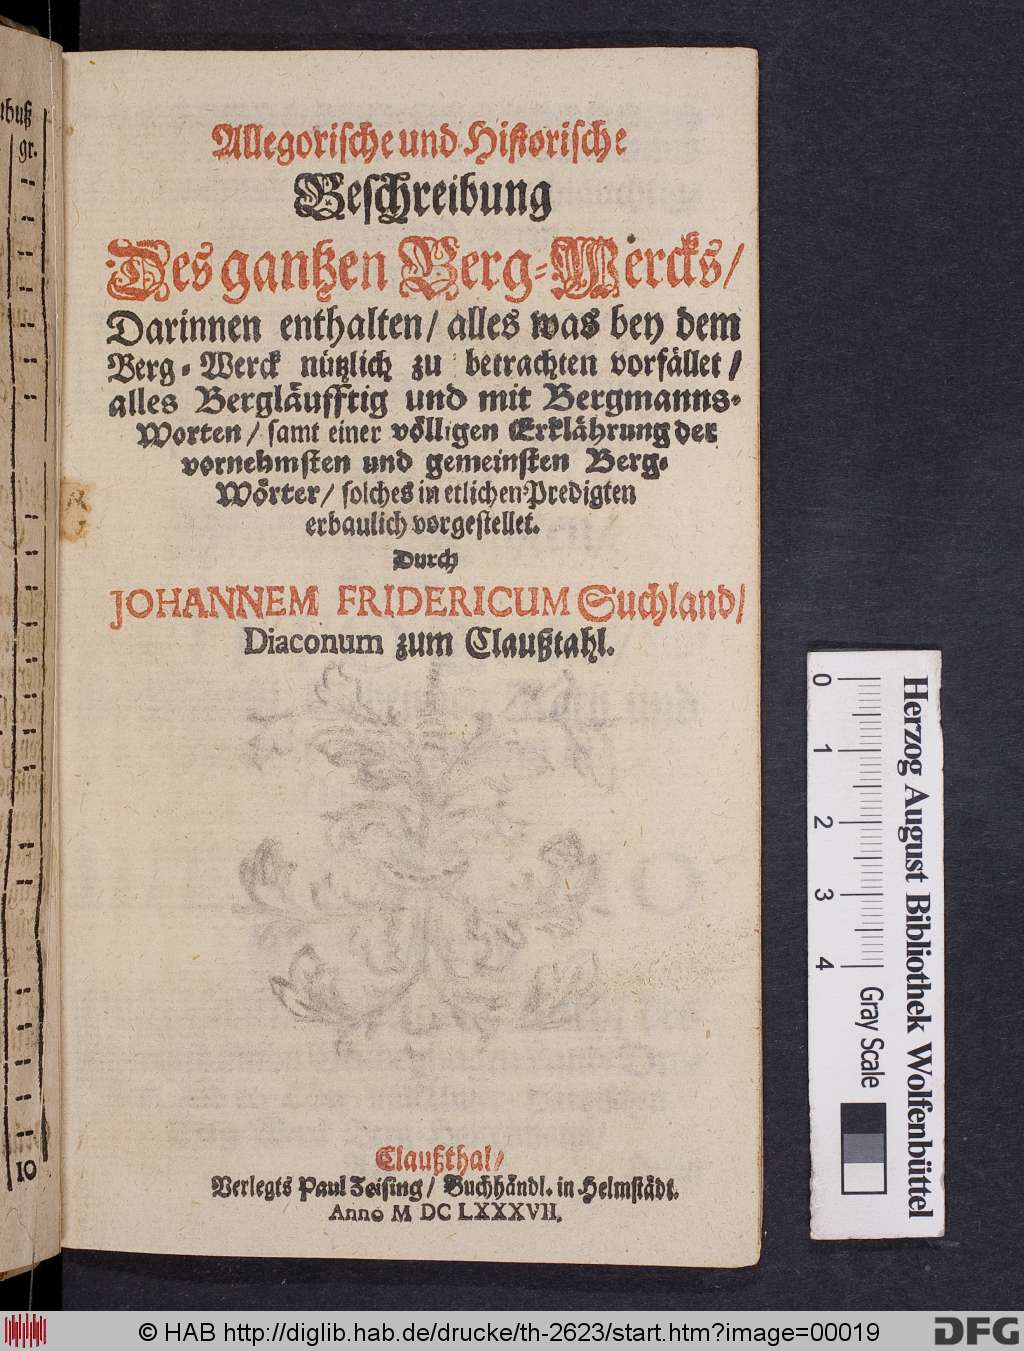 ibuß
gr.
10
Allegorische und Historische
Beschreibung
Des gantzen Berg-Wercks/
Darinnen enthalten/ alles was bey dem
Berg-Werck nützlich zu betrachten vorfället/
alles Bergläufftig und mit Bergmanns-
Worten/ samt einer völligen Erklährung der
vornehmsten und gemeinsten Berg-
Wörter/ solches in etlichen Predigten
erbaulich vorgestellet.
Durch
JOHANNEM FRIDERICUM Suchland/
Diaconum zum Claußtahl.
Claußthal/
Verlegts Paul Zeising/ Buchhändl. in Helmstädt.
Anno M DC LXXXVII.
0 1 2 3 4 Gray Scale
Herzog August Bibliothek Wolfenbüttel
© HAB http://diglib.hab.de/drucke/th-2623/start.htm?image=00019
DFG